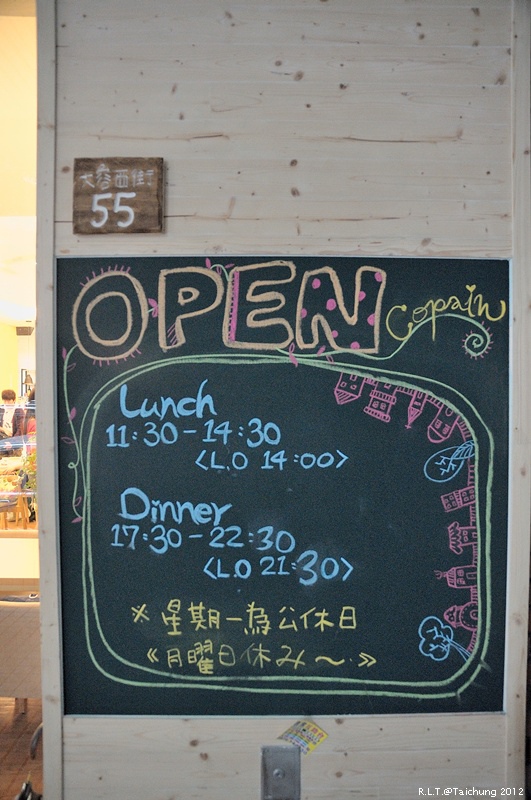 大容西街
55
OPEN
Copain
Lunch
11:30-14:30
<L.O 14:00>
Dinner
17:30-22:30
<L.O 21:30>
※星期一為公休日
《月曜日休み～.》
R.L.T.@Taichung 2012